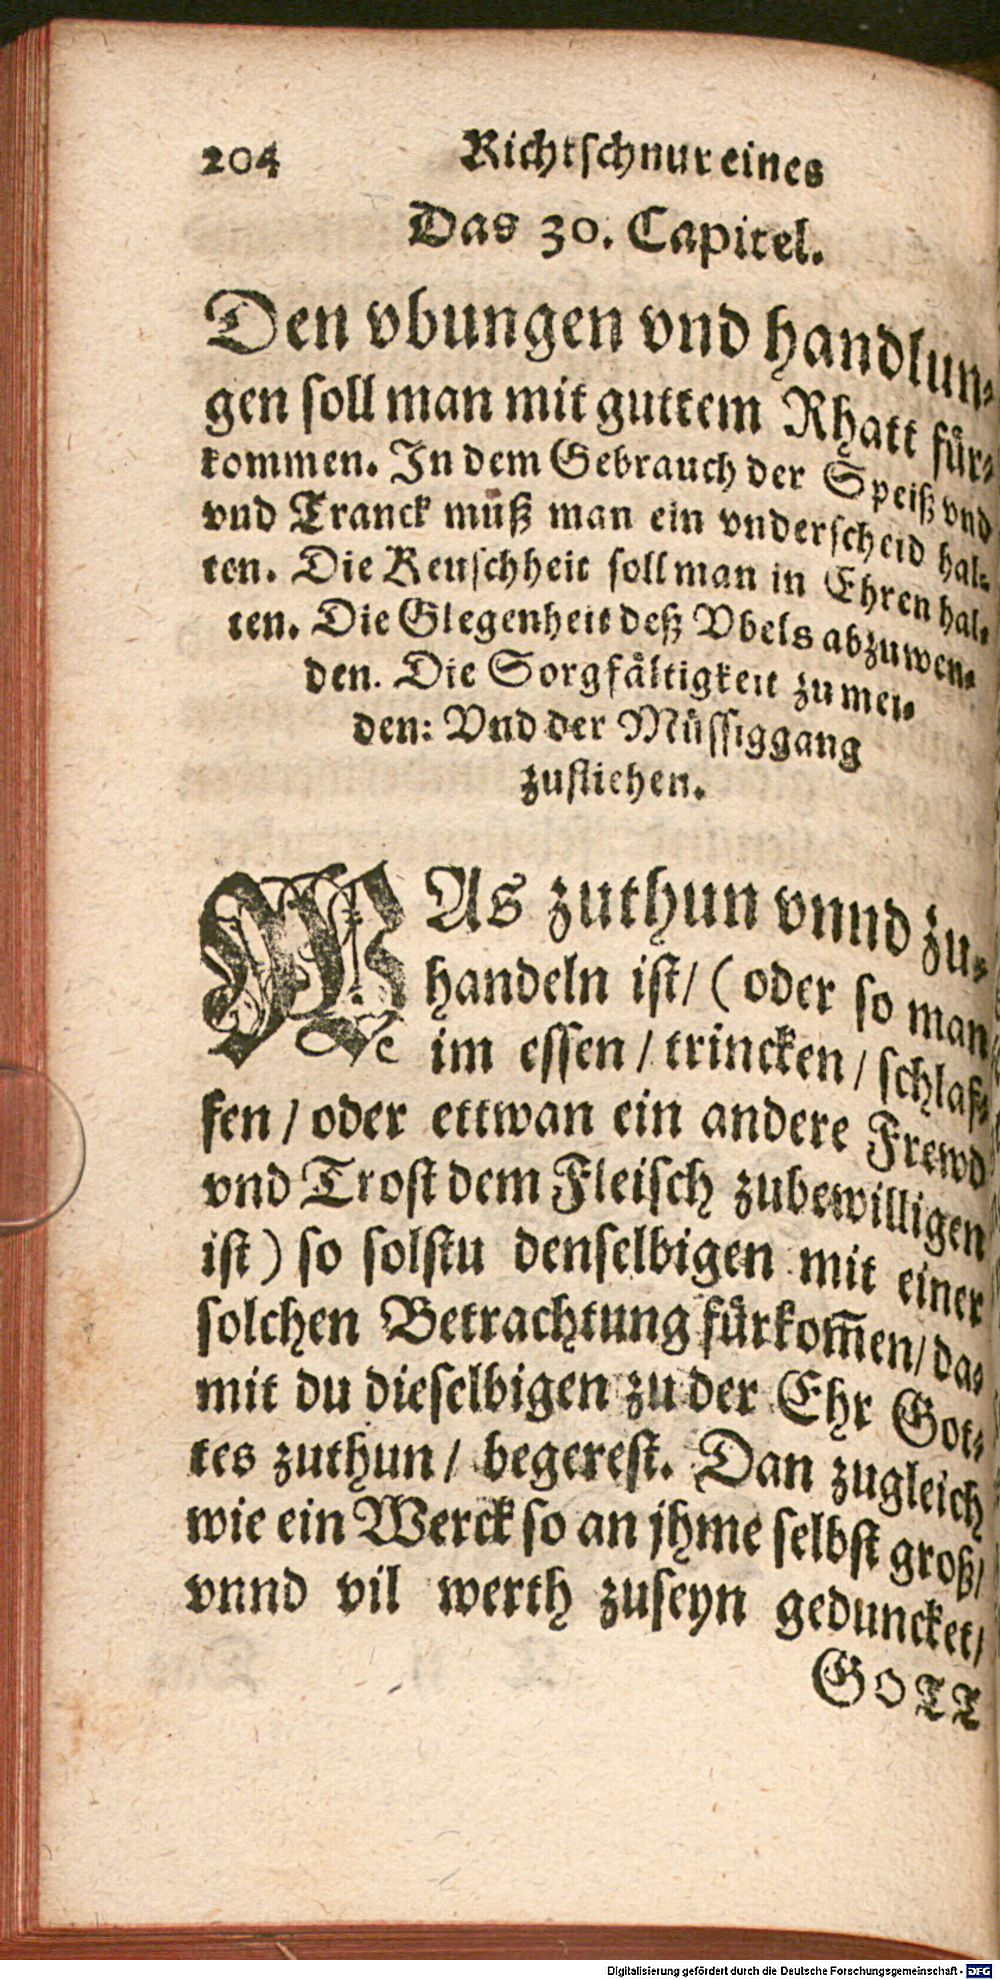 204 Richtschnur eines
Das 30. Capitel.
Den vbungen vnd handlun-
gen soll man mit guttem Rhatt für-
kommen. In dem Gebrauch der Speiß vnd
vnd Tranck muß man ein vnderscheid hal-
ten. Die Keuschheit soll man in Ehren hal-
ten. Die Glegenheit deß Vbels abzuwen-
den. Die Sorgfåltigkeit zu mei-
den: Vnd der Müssiggang
zufliehen.
WAs zuthun vnnd zu-
handeln ist/ (oder so man
im essen / trincken / schlaf-
fen / oder ettwan ein andere Frewd
vnd Trost dem Fleisch zubewilligen
ist) so solstu denselbigen mit einer
solchen Betrachtung fürkom̄en/ da-
mit du dieselbigen zu der Ehr Got-
tes zuthun/ begerest. Dan zugleich
wie ein Werck so an jhme selbst groß/
vnnd vil werth zuseyn geduncket/
GOTT
Digitalisierung gefördert durch die Deutsche Forschungsgemeinschaft - DFG